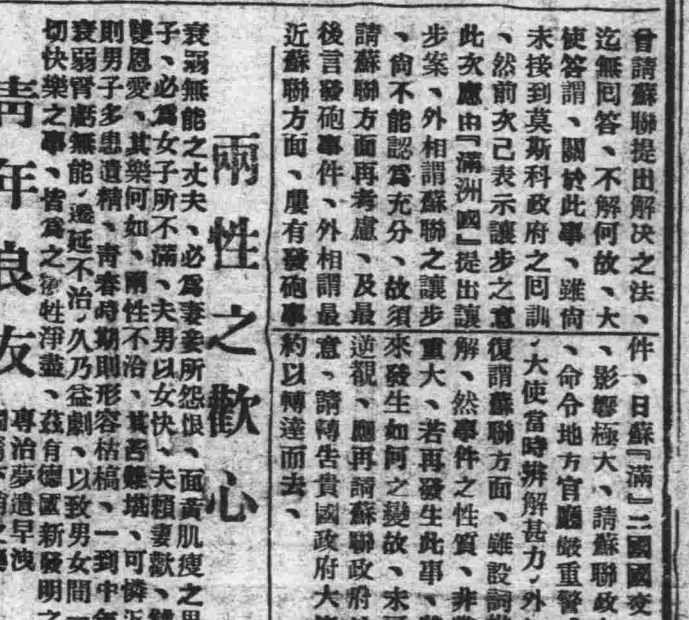 曾請蘇聯提出解决之法、
迄無回答、不解何故、大
使答謂、關於此事、雖尙
未接到莫斯科政府之回訓
、然前次已表示讓步之意
此次應由『滿洲國』提出讓
步案、外相謂蘇聯之讓步
、尙不能認爲充分、故須
請蘇聯方面再考慮、及最
後言發砲事件、外相謂最
近蘇聯方面、屢有發砲事
件、日蘇『滿』三國國交
、影響極大、請蘇聯政
、命令地方官廳嚴重警
、大使當時辨解甚力、外
復謂蘇聯方面、雖設詞
解、然事件之性質、非
重大、若再發生此事、
來發生如何之變故、未
逆覩、應再請蘇聯政府
意、請轉告貴國政府大
約以轉達而去、
兩性之歡心
衰弱無能之丈夫、必爲妻妾所怨恨、面黃肌瘦之男
子、必爲女子所不滿、夫男以女快、夫賴妻歡、
雙恩愛、其樂何如、兩性不洽、其苦難堪、可憐
則男子多患遺精、靑春時期則形容枯槁、一到中年
衰弱腎虧無能、遷延不治、久乃益劇、以致男女間一
切快樂之事、皆爲之犧牲淨盡、茲有德國新發明之
靑年良友
專治夢遺早洩